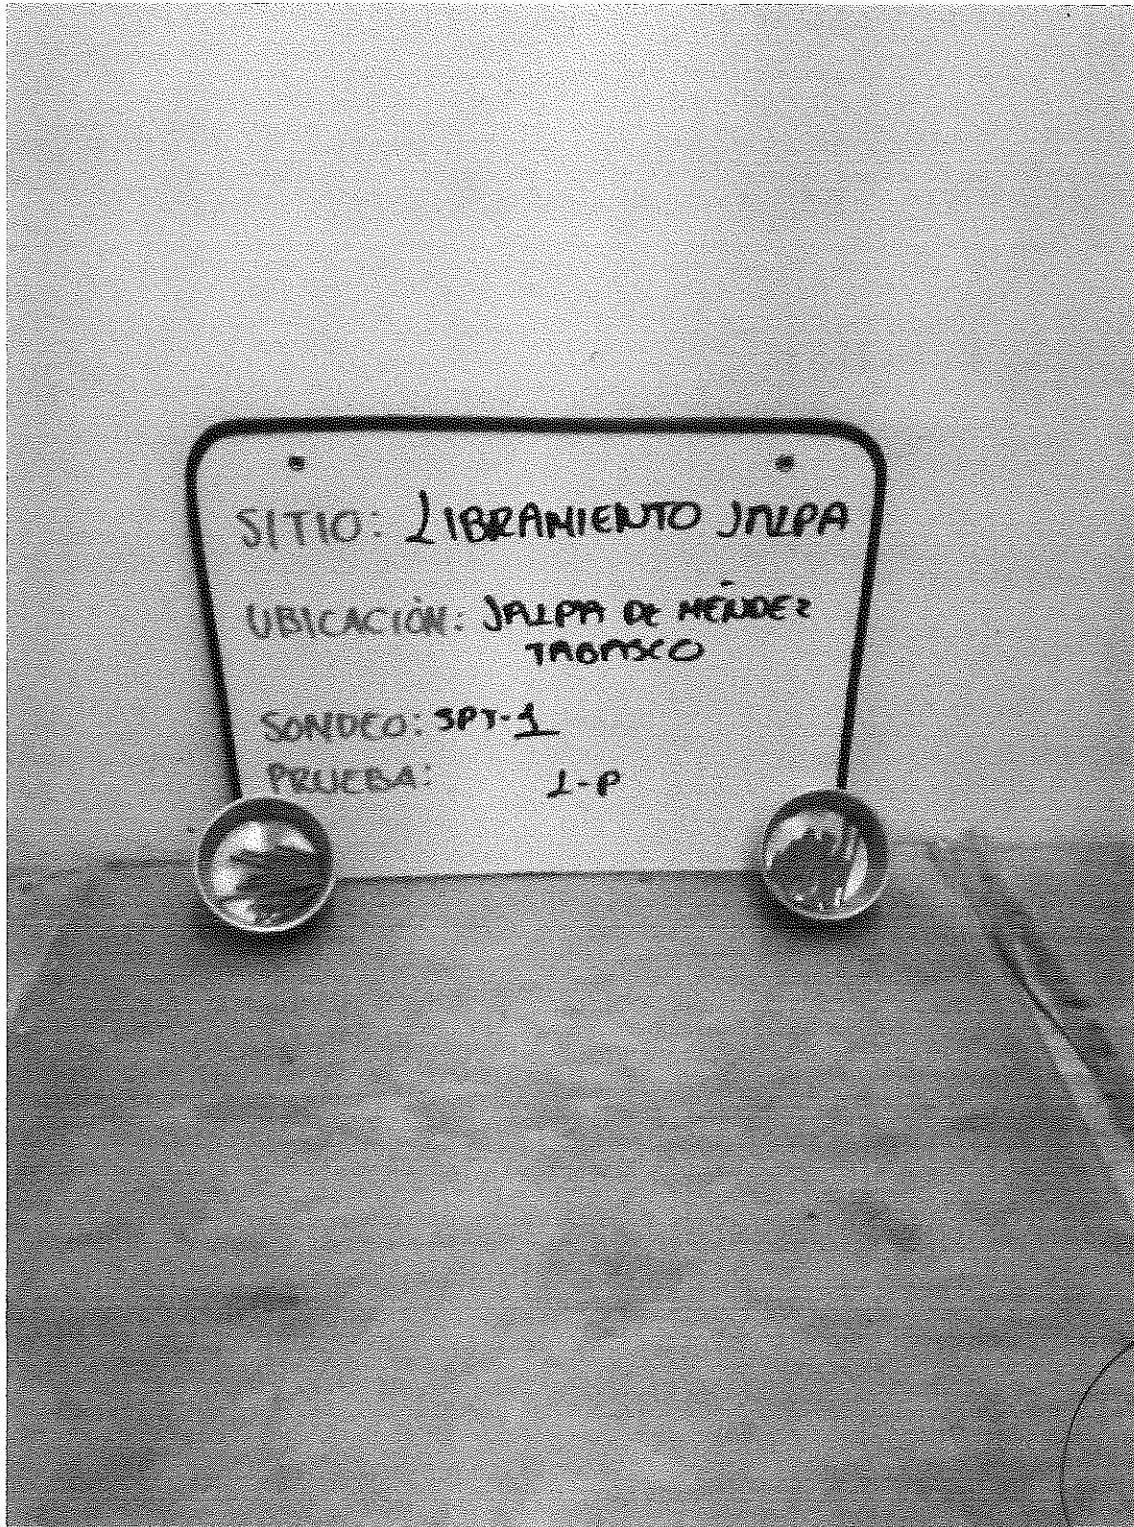 SITIO: LIBRAMIENTO JALPA
UBICACIÓN: JALPA DE MÉNDEZ
TABASCO
SONDEO: SPT-1
PRUEBA: 1-P